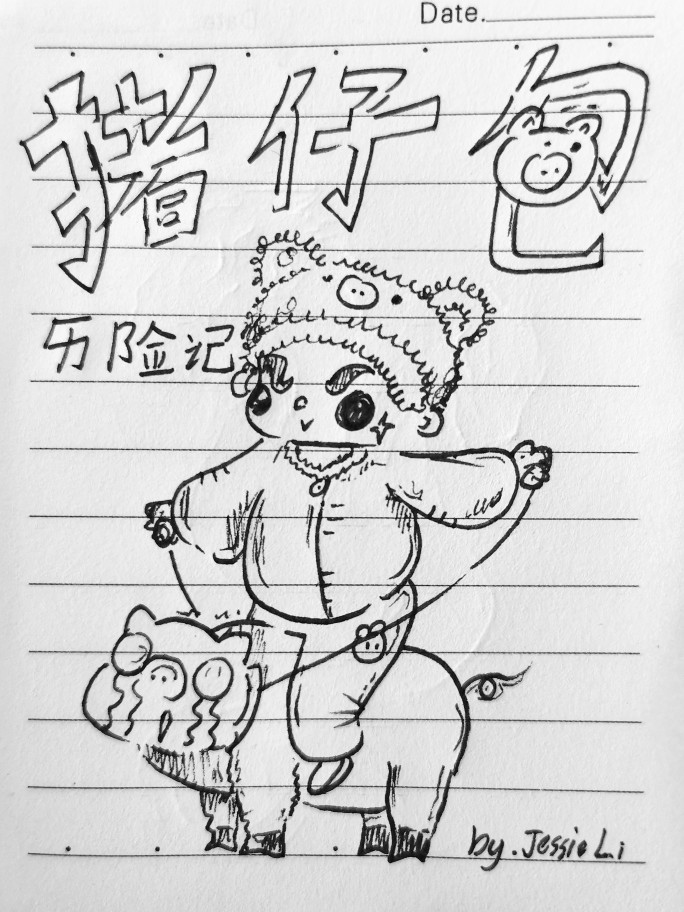 Date.
猪仔包
历险记
by. Jessie Li